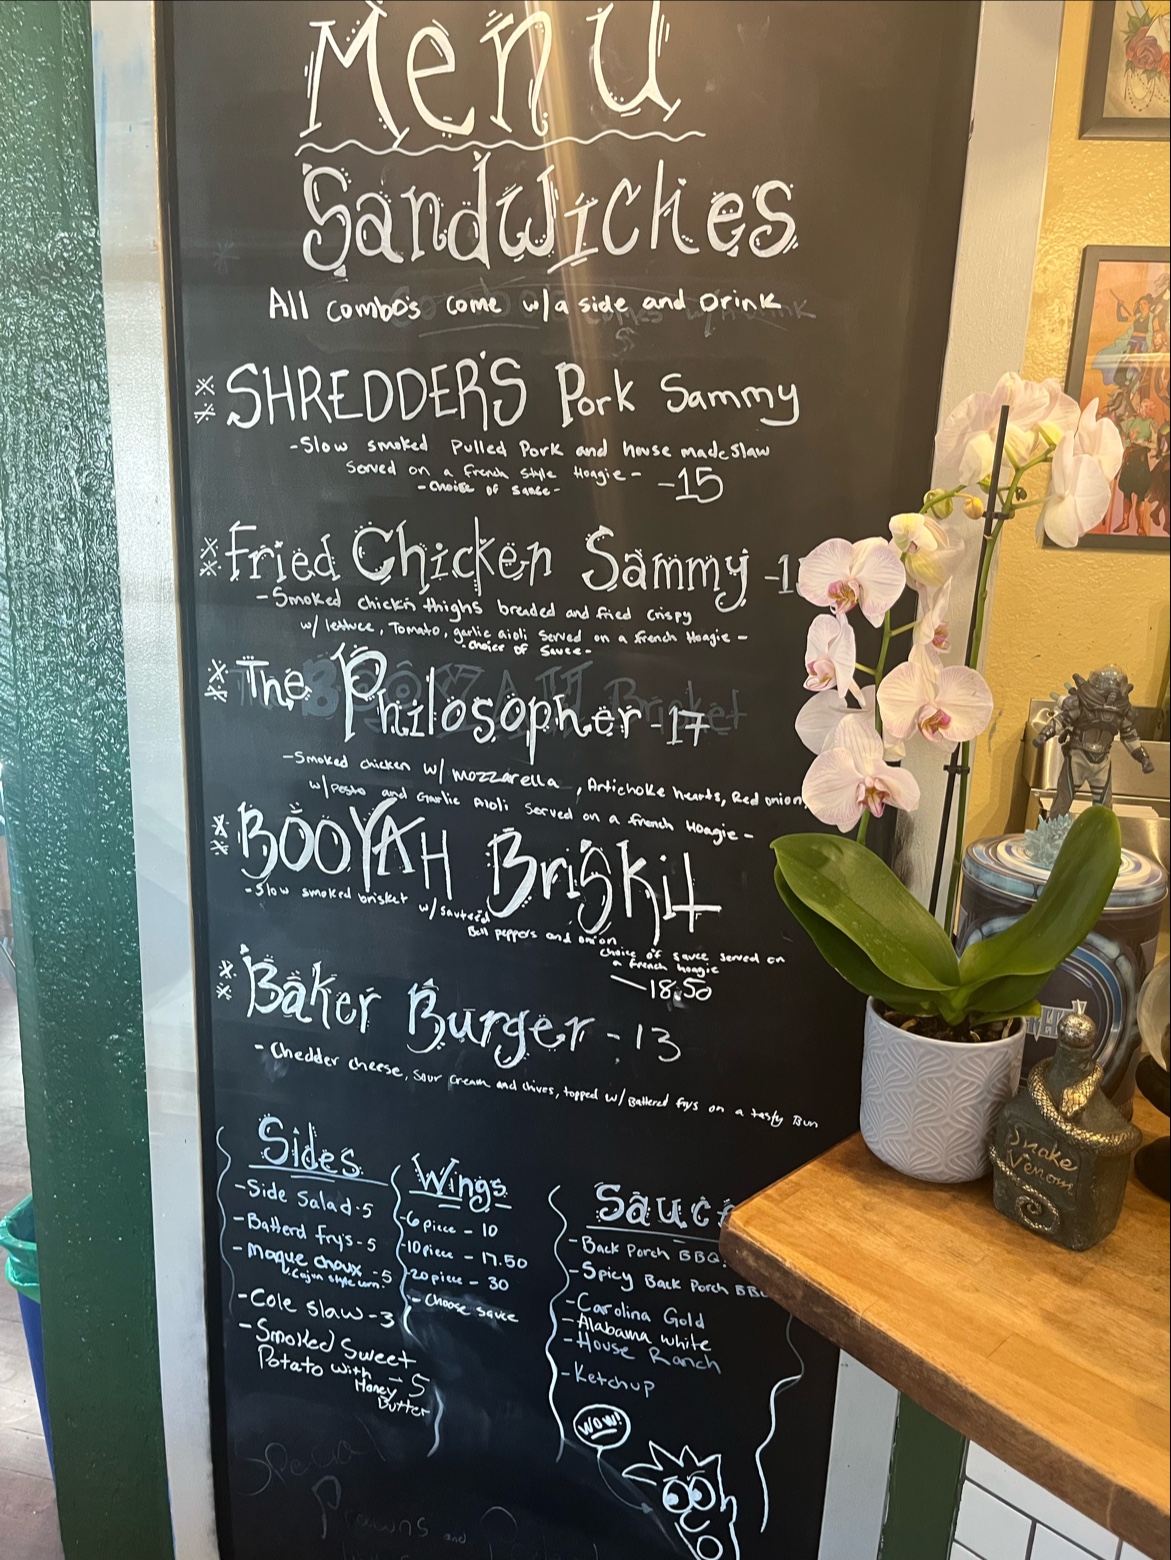 Menu
Sandwiches
All combo's come w/a side and Drink
SHREDDER'S Pork Sammy
-Slow smoked Pulled Pork and house made slaw
Served on a french style Hoagie-
-choise of sauce-
-15
Fried Chicken Sammy -1
-Smoked chickn thighs breaded and fried crispy
w/ lettuce, Tomato, garlic aioli Served on a french Hoagie-
-choice of Sauce-
The Philosopher -17
-Smoked chicken w/ mozzarella, Artichoke hearts, Red onion
w/pesto and Garlic Aioli Served on a french Hoagie-
BOOYAH Briskit
-Slow smoked brisket w/ sauteed
Bell peppers and onion
choice of sauce served on
a french hoagie
-18.50
Baker Burger -13
-Chedder cheese, Sour Cream and chives, topped w/ Batterd frys on a tasty Bun
Sides
-Side Salad-5
-Batterd fry's-5
-Maque chaux -5
Cajun style corn
-Cole slaw-3
-Smoked Sweet
Potato with -5
Honey
Butter
Wings
-6 piece - 10
-10 piece - 17.50
-20 piece - 30
-Choose sauce
Sauce
-Back Porch BBQ
-Spicy Back Porch BBQ
-Carolina Gold
-Alabama white
-House Ranch
-Ketchup
WOW!
Special
Prawns and
Snake
Venom